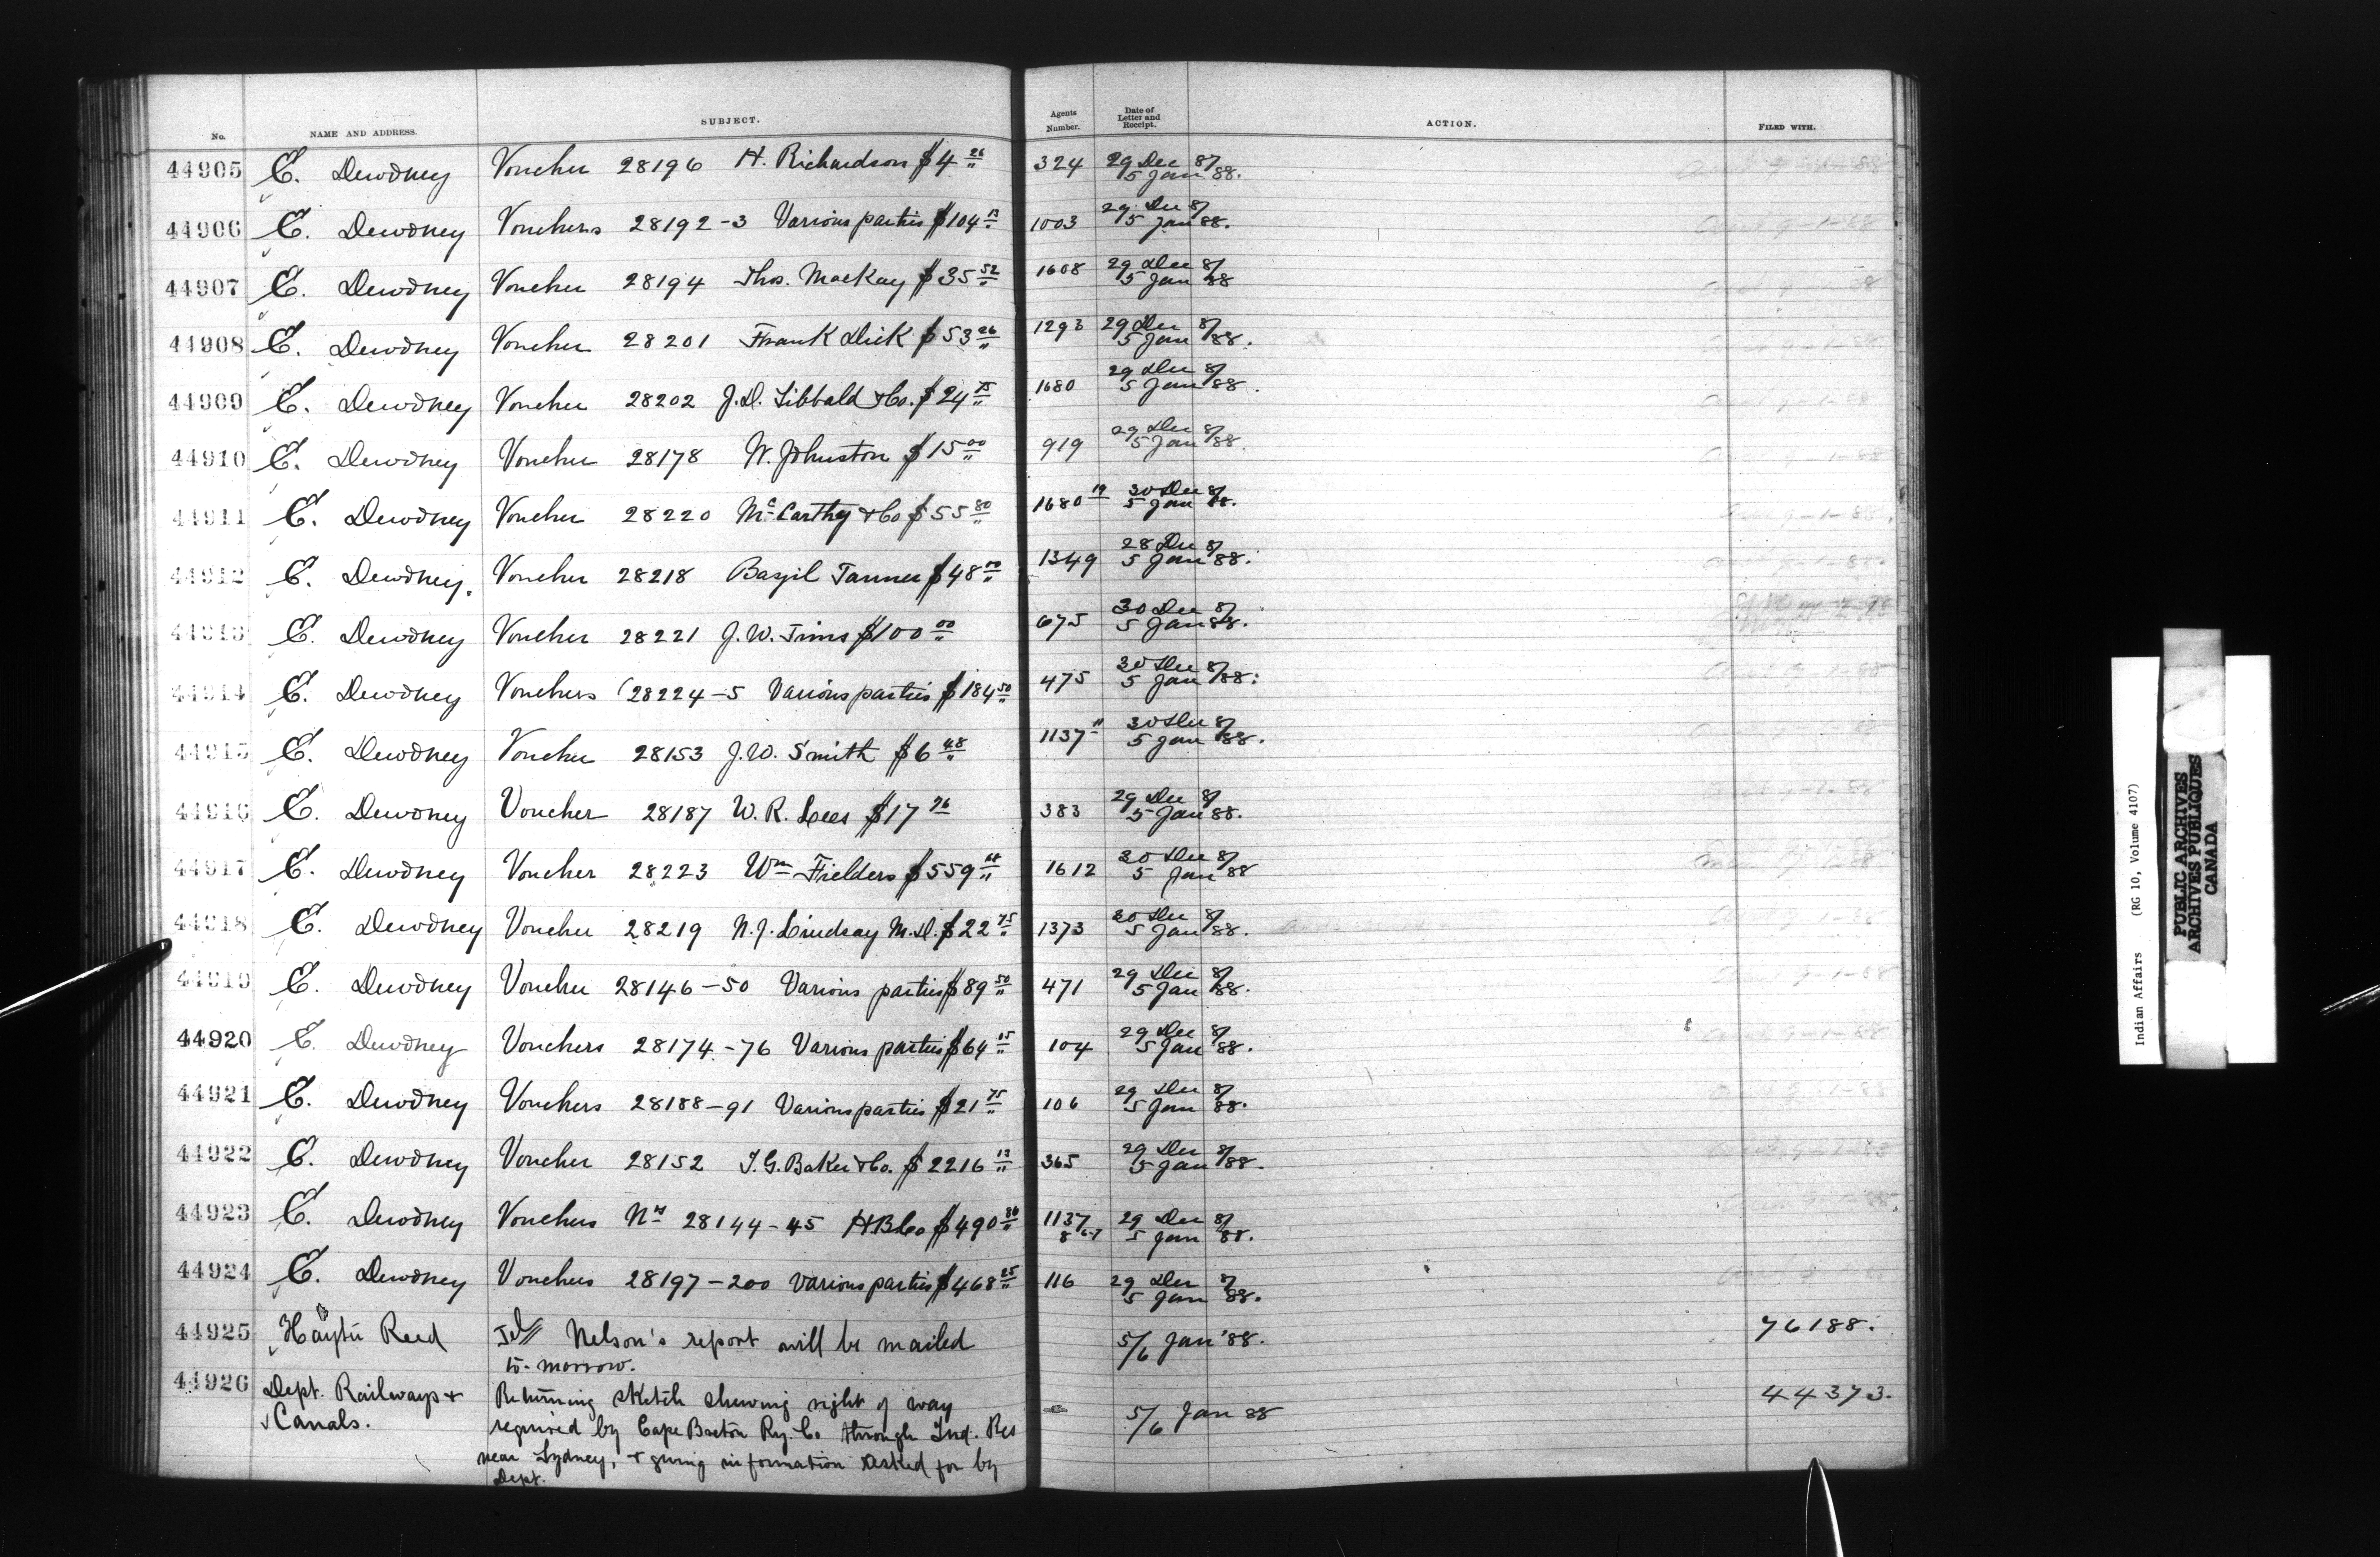 No. NAME AND ADDRESS. SUBJECT. Agents Number. Date of Letter and Receipt. ACTION. FILED WITH.
44905 E. Dewdney Voucher 28196 H. Richardson $4 26 324 29 Dec 87 5 Jan 88.
44906 E. Dewdney Vouchers 28192-3 Various parties $104 13 1003 29 Dec 87 5 Jan 88.
44907 E. Dewdney Voucher 28194 Thos. MacKay $35 52 1608 29 Dec 87 5 Jan 88
44908 E. Dewdney Voucher 28201 Frank Dick $53 26 1293 29 Dec 87 5 Jan 88.
44909 E. Dewdney Voucher 28202 J.D. Sibbald & Co. $24 75 1680 29 Dec 87 5 Jan 88.
44910 E. Dewdney Voucher 28178 W. Johnston $15 00 919 29 Dec 87 5 Jan 88.
44911 E. Dewdney Voucher 28220 McCarthy & Co $55 80 1680 19 30 Dec 87 5 Jan 88.
44912 E. Dewdney. Voucher 28218 Bazil Tanner $48 00 1349 28 Dec 87 5 Jan 88.
44913 E. Dewdney Voucher 28221 J.W. Tims $100 00 675 30 Dec 87 5 Jan 88.
44914 E. Dewdney Vouchers 28224-5 Various parties $184 50 475 30 Dec 87 5 Jan 88.
44915 E. Dewdney Voucher 28153 J.W. Smith $6 48 1137 11 30 Dec 87 5 Jan 88.
44916 E. Dewdney Voucher 28187 W.R. Lees $17 76 383 29 Dec 87 5 Jan 88.
44917 E. Dewdney Voucher 28223 Wm Fielders $559 1612 30 Dec 87 5 Jan 88
44918 E. Dewdney Voucher 28219 N.J. Lindsay M.D. $22 75 1373 30 Dec 87 5 Jan 88.
44919 E. Dewdney Voucher 28146-50 Various parties $89 50 471 29 Dec 87 5 Jan 88.
44920 E. Dewdney Vouchers 28174-76 Various parties $64 05 104 29 Dec 87 5 Jan 88.
44921 E. Dewdney Vouchers 28188-91 Various parties $21 75 106 29 Dec 87 5 Jan 88.
44922 E. Dewdney Voucher 28152 I.G. Baker & Co. $2216 13 365 29 Dec 87 5 Jan 88.
44923 E. Dewdney Vouchers Nos 28144-45 HBCo $490 86 1137 8 6-7 29 Dec 87 5 Jan 88.
44924 E. Dewdney Vouchers 28197-200 Various parties $468 25 116 29 Dec 87 5 Jan 88.
44925 Hayter Reed Tel// Nelson's report will be mailed 5/6 Jan '88. 76188.
to-morrow.
44926 Dept. Railways & Returning sketch shewing right of way 5/6 Jan 88 44373.
Canals. required by Cape Breton Ry. Co through Ind. Res
near Sydney, & giving information asked for by
Dept.
Indian Affairs (RG 10, Volume 4107)
PUBLIC ARCHIVES
ARCHIVES PUBLIQUES
CANADA